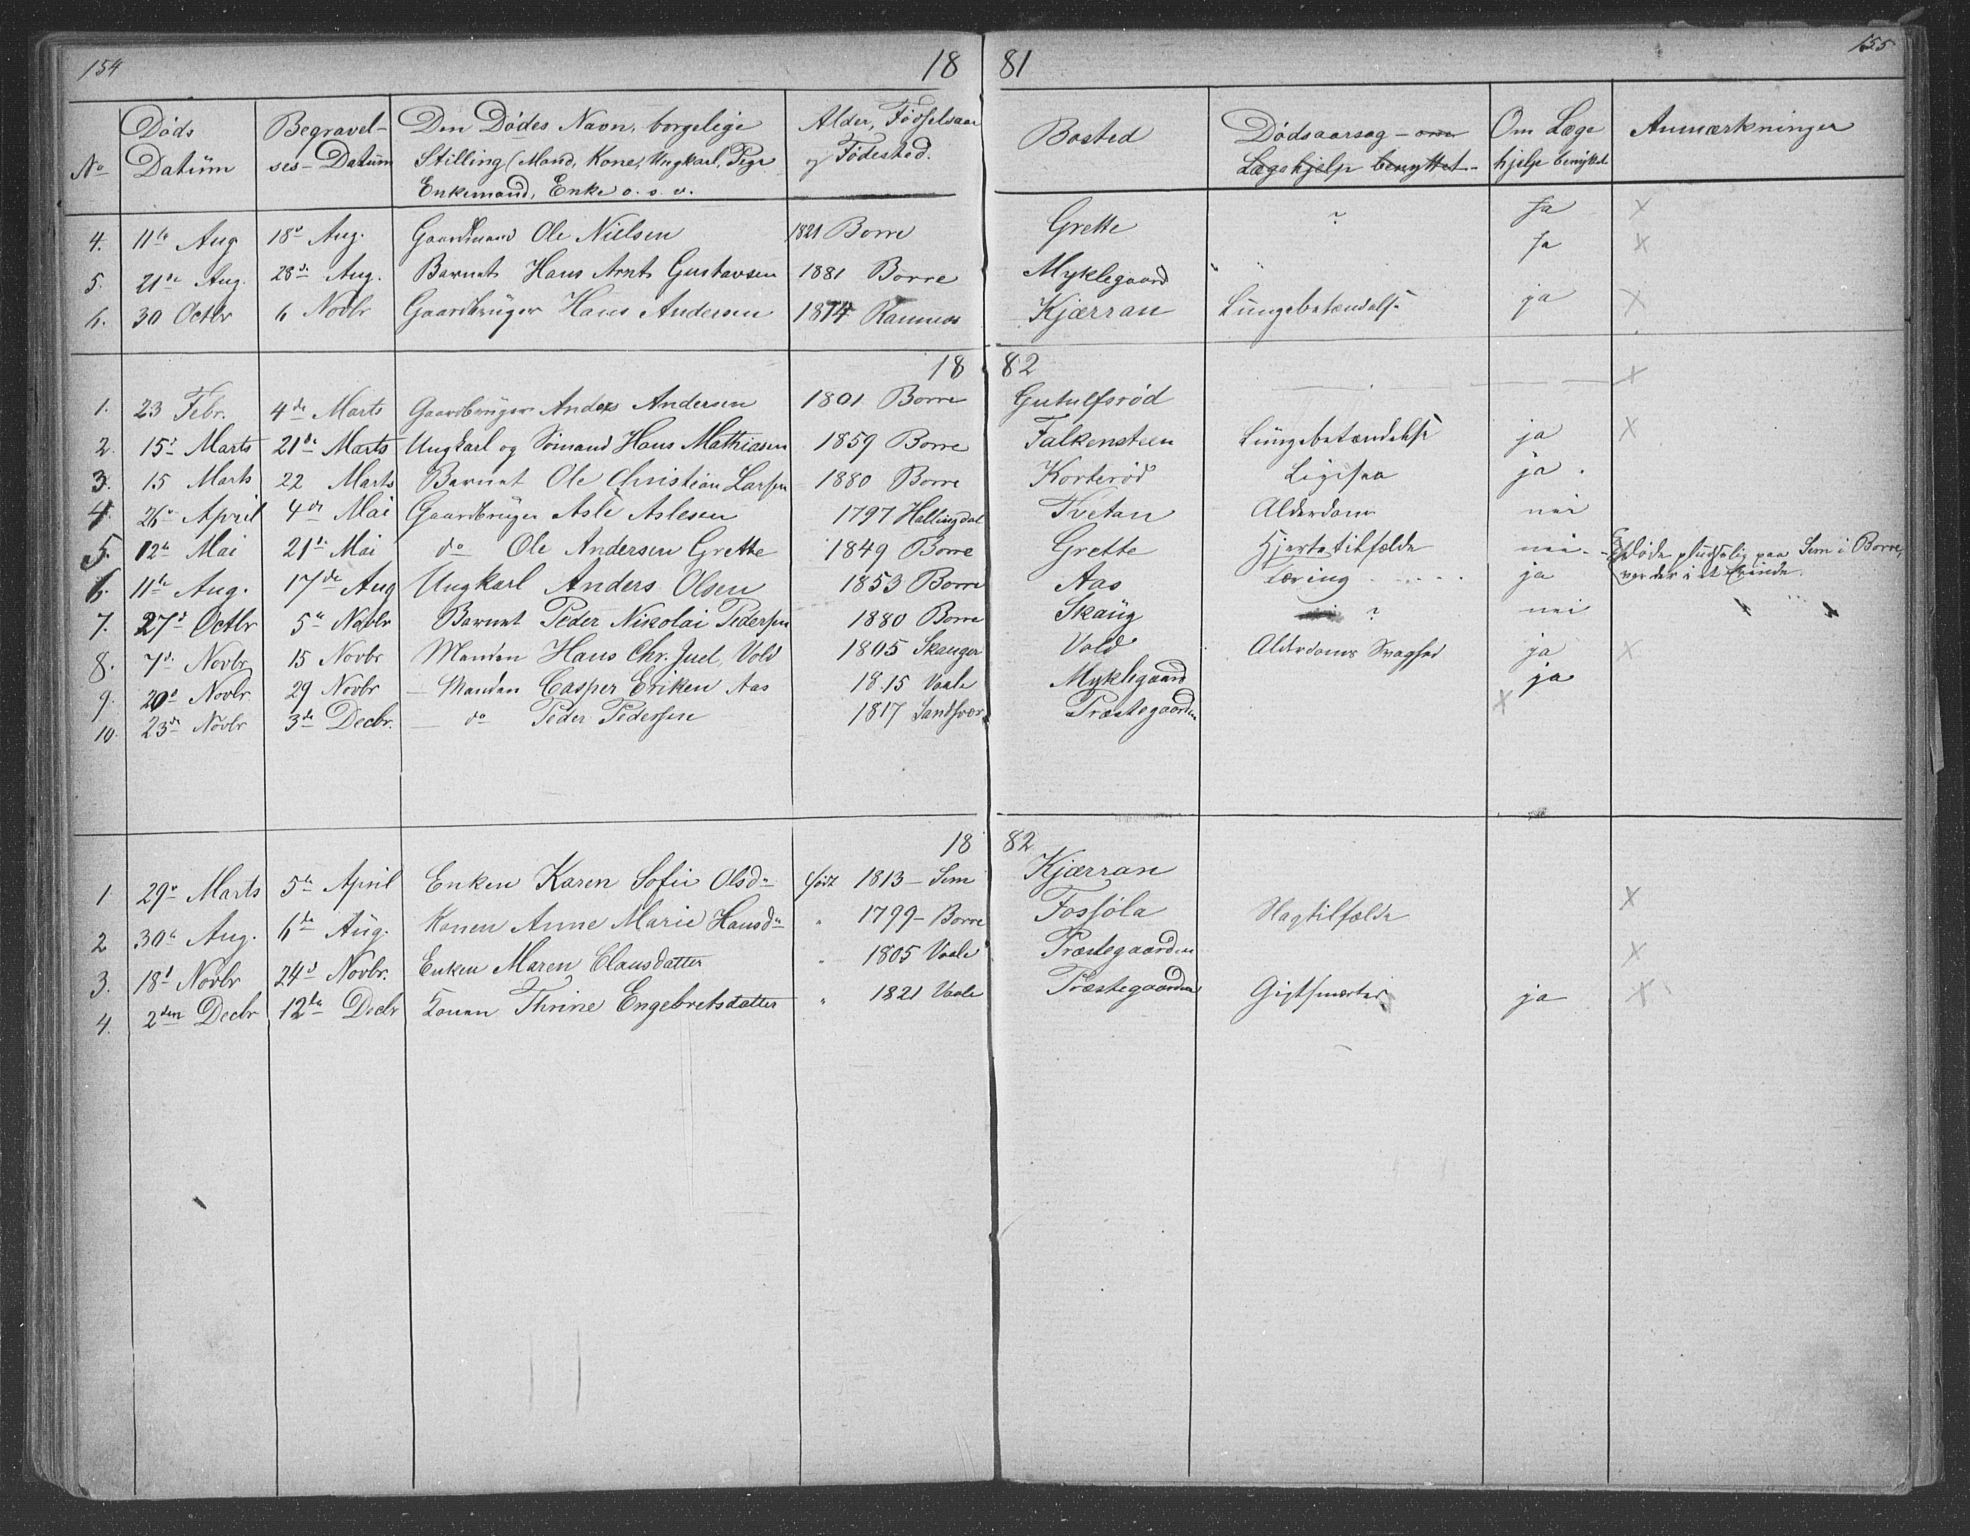 154
18 81
155
No Døds Datum Begravelses-Datum Den Dødes Navn, borgelige Stilling (Mand, Kone, Ungkarl, Pige Enkemand, Enke o. s. v. Alder, Fødselsaar og Fødested. Bosted Dødsaarsag - om Lægehjelp benyttet - Om Læge hjelp benyttet Anmærkninger
4. 11te Aug 18de Aug. Gaardmand Ole Nielsen 1821 Borre Grette ? Ja X
5. 21de Aug. 28de Aug. Barnet Hans Arnt Gustavsen 1881 Borre Myklegaard " Ja X
6. 30 Octbr 6 Novbr Gaardbruger Hans Andersen 1814 Ramnes Kjærran Lungebetændelse ja X
18 82
1. 23 Febr. 4de Marts Gaardbruger Anders Andersen 1801 Borre Gutulfsrød X
2. 15d Marts 21de Marts Ungkarl og Sømand Hans Mathiasen 1859 Borre Falkensteen Lungebetændelse ja X
3. 15 Marts 22 Marts Barnet Ole Christian Larsen 1880 Borre Korterød ja.
4. 26e April 4de Mai Gaardbruger Asle Aslesen 1797 Hallingdal Tvetan Alderdom nei
5. 12te Mai 21de Mai do Ole Andersen Grette 1849 Borre Grette Hjertetilfælde nei - døde pludselig paa Sem i Borre, var der i et Erinde.
6. 11te Aug. 17de Aug Ungkarl Anders Olsen 1853 Borre Aas Tæring ja
7. 27d Octbr 5te Novbr Barnet Peder Nikolai Pedersen 1880 Borre Skaug ? nei
8. 7d Novbr 15 Novbr Manden Hans Chr. Juel, Vold 1805 Skauger Vold Alderdoms Svaghed ja X
9. 20d Novbr 29 Novbr - Manden Casper Eriken Aas 1815 Vaale Myklegaard ja
10. 23de Novbr 3de Decbr. - do Peder Pedersen 1817 Sandsvær Præstegaarden X
18 82
1 29e Marts 5te April Enken Karen Sofie Olsdr født 1813 - Sem Kjærran
2 30te Aug. 6te Aug. Konen Anne Marie Hansdr " 1799 - Borre Fossøla Slagtilfælde X
3. 18d Novbr 24d Novbr. Enken Maren Clausdatter " 1805 Vaale Præstegaarden X
4. 2den Decbr 12te Decbr Konen Thrine Engebretsdatter " 1821 Vaale Præstegaarden Gigtsmerter ja X